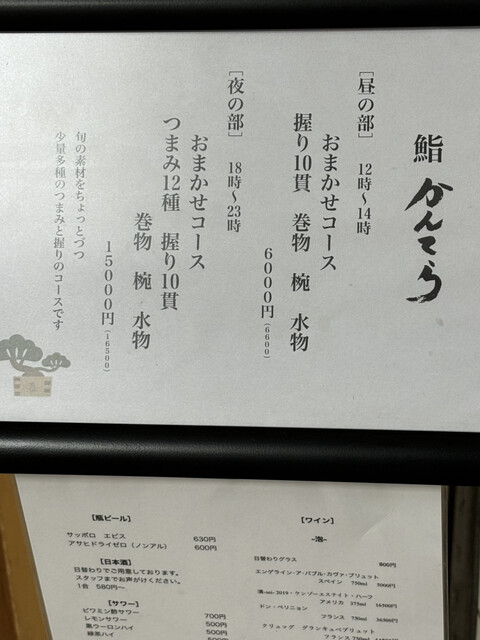 鮨 かんてら
［昼の部］ 12時〜14時
おまかせコース
握り10貫 巻物 椀 水物
6000円(6600)
［夜の部］ 18時〜23時
おまかせコース
つまみ12種 握り10貫
巻物 椀 水物
15000円(16500)
旬の素材をちょっとづつ
少量多種のつまみと握りのコースです
【瓶ビール】
サッポロ ヱビス 630円
アサヒドライゼロ（ノンアル） 600円
【日本酒】
日替わりでご用意しております。
スタッフまでお声がけください。
1合 580円〜
【サワー】
ビワミン酢サワー 700円
レモンサワー 500円
黒ウーロンハイ 500円
緑茶ハイ
【ワイン】
-泡-
日替わりグラス 800円
エンゲライン・ア・パブル・カヴァ・ブリュット
スペイン 750ml 5000円
ケンゾーエステイト・ハーフ
アメリカ 375ml 16500円
ドン・ペリニョン
フランス 750ml
フランス 750ml